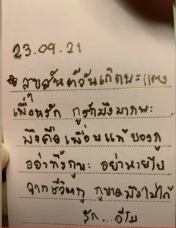 23.09.21
สุขสันต์วันเกิดนะ
เพื่อนรัก กูรักมึงมากนะ
มึงคือเพื่อนแท้ของกู
อย่าทิ้งกูนะ อย่าหายไป
จากชีวิตกู กูขาดมึงไม่ได้
รัก...